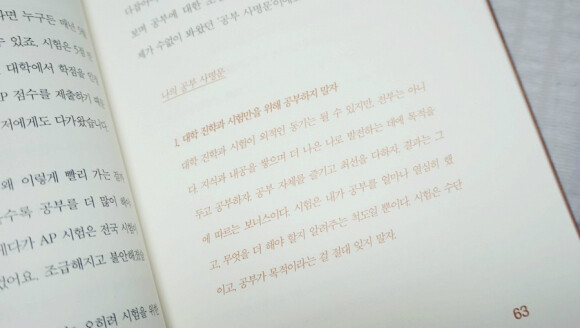 라면 누구든
수 있죠. 시험은 5월
대학에서 학점을
AP 점수를 제출하기
저에게도 다가왔습니다
왜 이렇게 빨리 가는
수록 공부를 더 많이
게다가 AP 시험은 전국
있어요. 조급해지고 불안해졌
오히려 시험을 위한
보며 공부에 대한
째가 수없이 봐왔던 '공부 사명문'이에
나의 공부 사명문
1. 대학 진학과 시험만을 위해 공부하지 말자
대학 진학과 시험이 외적인 동기는 될 수 있지만, 전부는 아니
다. 지식과 내공을 쌓으며 더 나은 나로 발전하는 데에 목적을
두고 공부하자. 공부 자체를 즐기고 최선을 다하자. 결과는 그
에 따르는 보너스이다. 시험은 내가 공부를 얼마나 열심히 했
고, 무엇을 더 해야 할지 알려주는 척도일 뿐이다. 시험은 수단
이고, 공부가 목적이라는 걸 절대 잊지 말자.
63